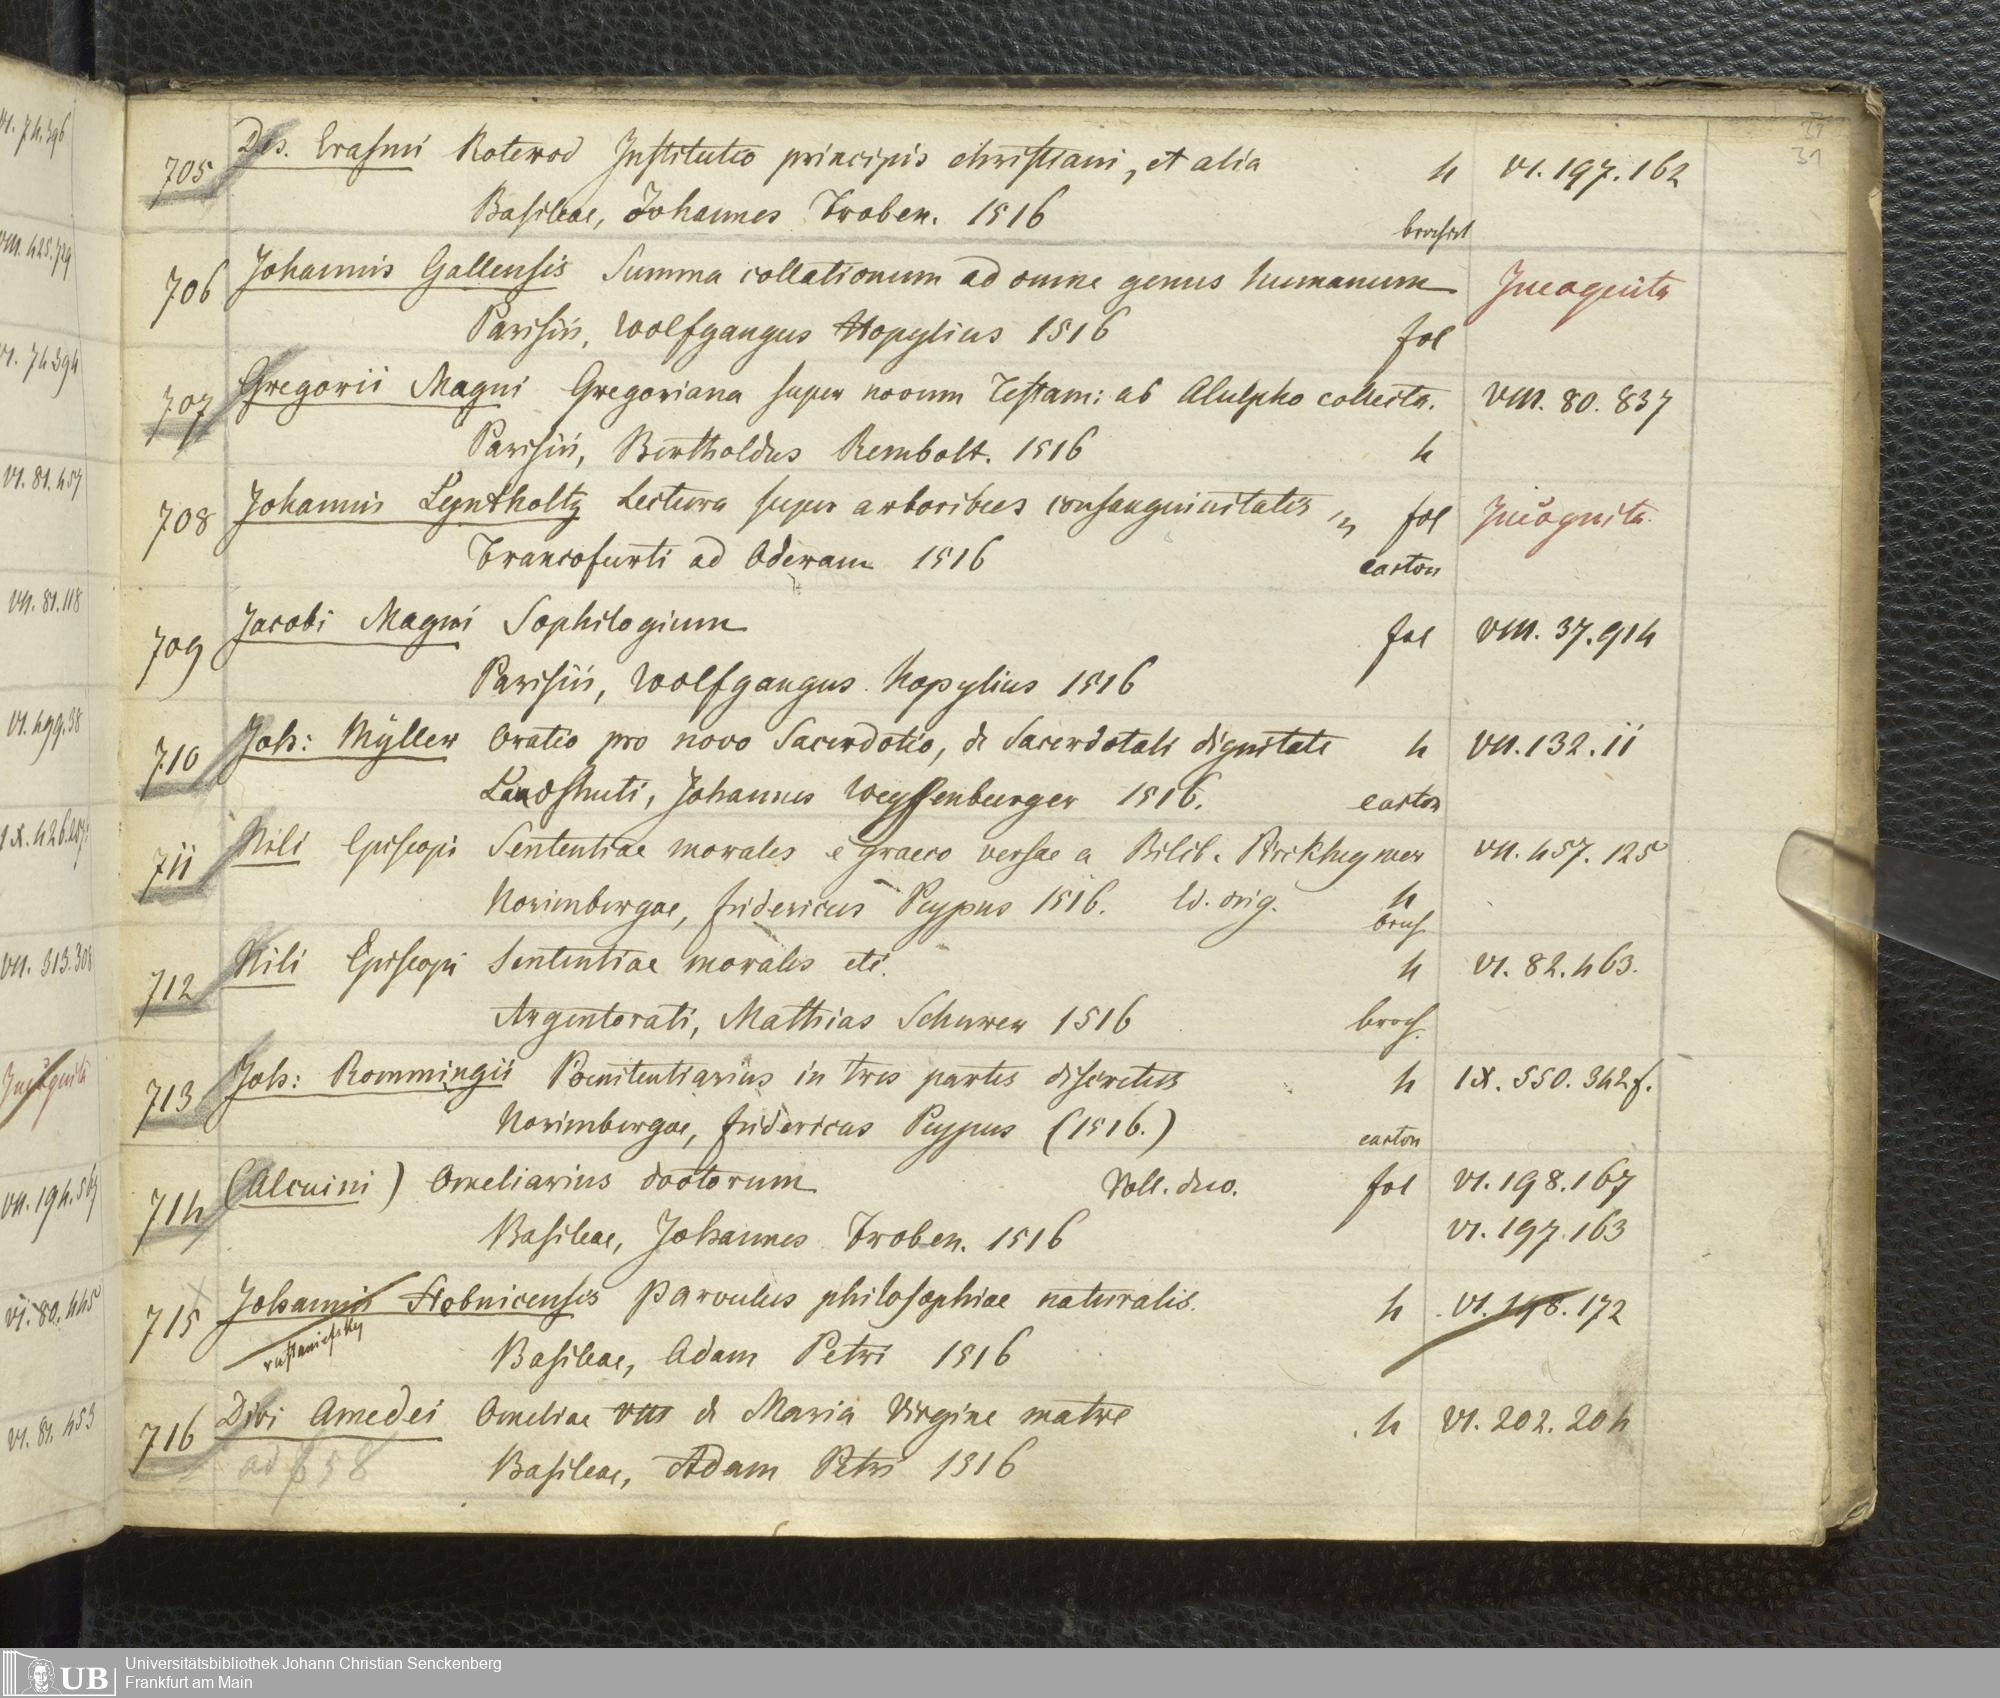 VI. 74.396
VIII. 425.729
VI. 74.394
VI. 81.457
VII. 81.118
VI. 499.38
VII. 313.308
Incognita
VII. 194.567
VI. 80.445
VI. 81.453
31
705 Des. Erasmi Roterod Institutio principis christiani, et alia 4 VI. 197. 162
Basileae, Johannes Froben. 1516 brochirt
706 Johannis Gallensis Summa collationum ad omne genus humanum Incognita
Parisiis, Wolfgangus Hopylius 1516 fol
707 Gregorii Magni Gregoriana super novum Testam: ab Alulpho collecta. VIII. 80. 837
Parisiis, Bertholdus Rembolt. 1516 4
708 Johannis Lyntholtz Lectura super arboribus consanguinitatis fol Incognita
Francofurti ad Oderam 1516 carton
709 Jacobi Magni Sophilogium fol VIII. 37. 914
Parisiis, Wolfgangus Hopylius 1516
710 Joh: Mÿller Oratio pro novo Sacerdotio, de Sacerdotali dignitate 4 VII. 132. 11
Landshuti, Johannes Weyssenburger 1516. carton
711 Nili Episcopi Sententiae morales e graeco versae a Bilib. Pirckheymer VII. 457. 125
Norimbergae, Fridericus Peypus 1516. Ed. orig. 4
broch.
712 Nili Episcopi Sententiae morales etc. 4 VI. 82. 463.
Argentorati, Mathias Schurer 1516 broch.
713 Joh: Rommingii Poenitentiarius in tres partes discretus 4 IX. 550. 342f.
Norimbergae, Fridericus Peypus (1516.) carton
714 (Alcuini) Omeliarius doctorum Voll. duo. fol VI. 198. 167
Basileae, Johannes Froben. 1516 VI. 197. 163
715 Johannis Stobnicensis Parvulus philosophiae naturalis. 4 VI. 198. 172
Basileae, Adam Petri 1516
716 Divi Amedei Omeliae VIII de Maria Virgine matre 4 VI. 202. 204
ad 658 Basileae, Adam Petri 1516
UB
Universitätsbibliothek Johann Christian Senckenberg
Frankfurt am Main